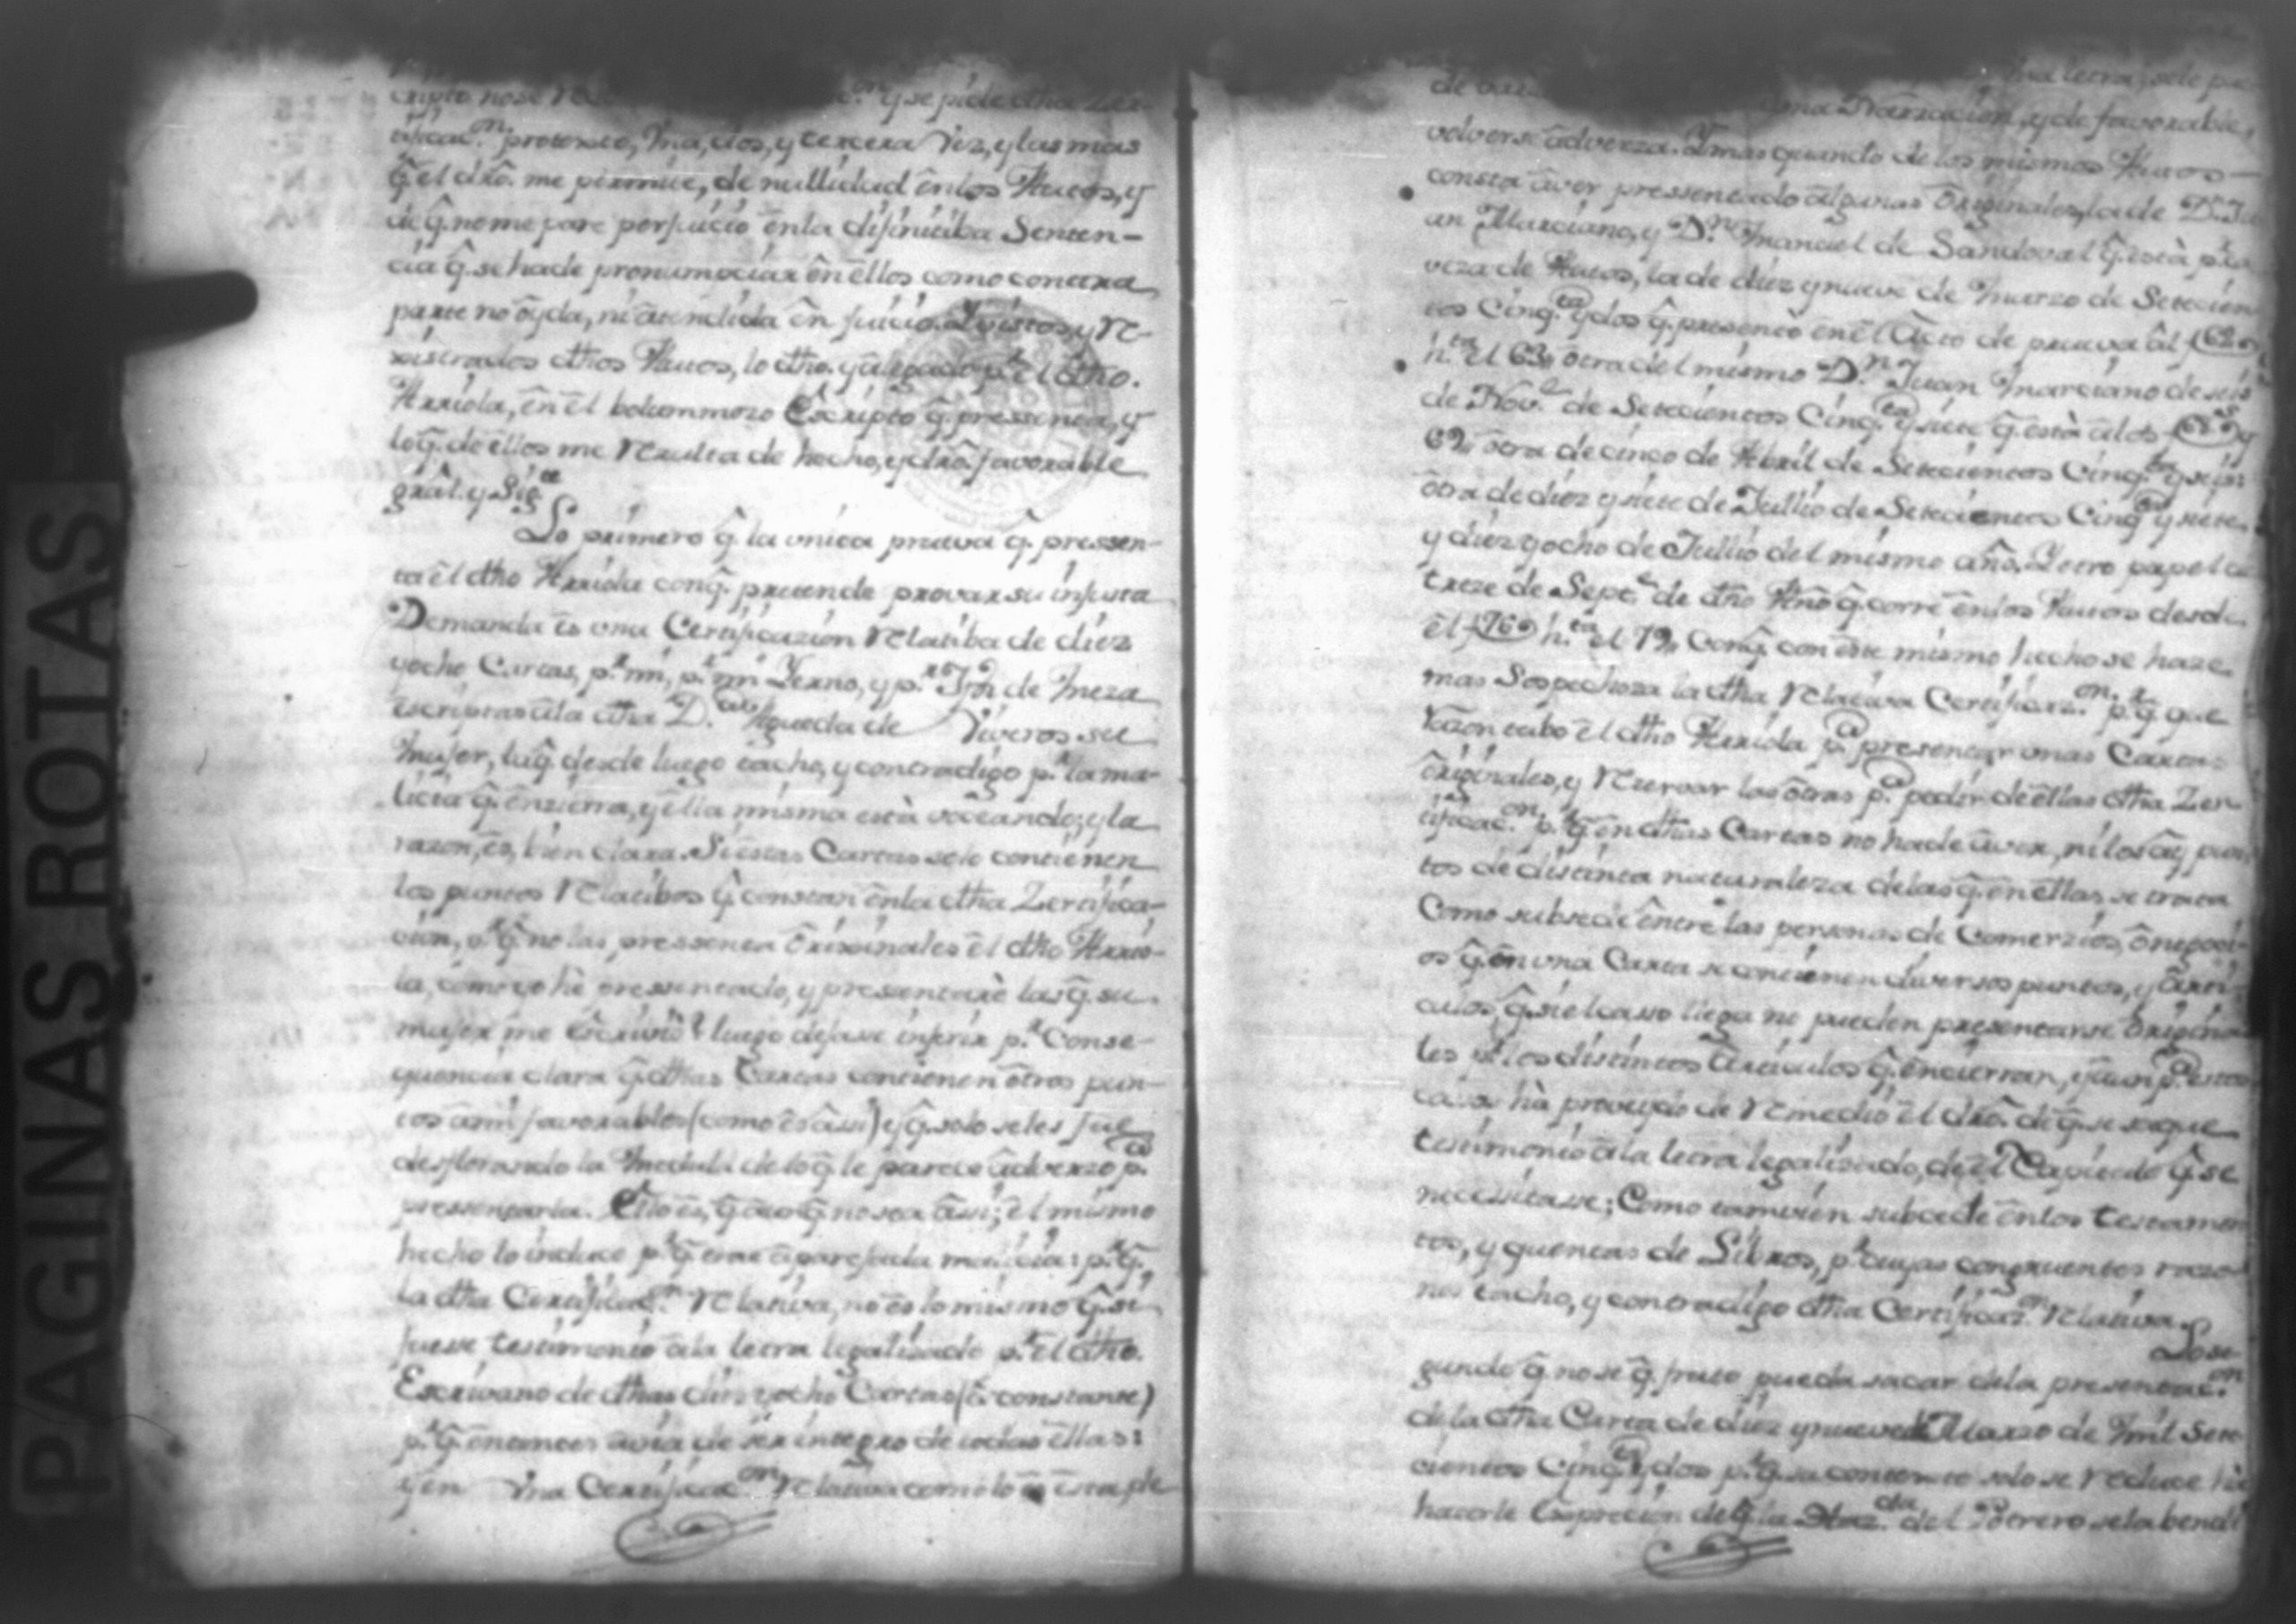 cripto no se y se pide dha Zer-
tificac.on protexto, Vna, dos, y tercera Vez, y las mas
q̂ el drō. me pirmite, de nullidad ēn los Autos, y
de q̂ no me pare perjuicio ēn la difinitiba Senten-
cia q̂ se ha de pronumnciar ēn ēllos como contra
parte no ōyda, ni ātendida ēn juicio. Y vistos, y re-
xistrados dhos Autos, lo dho. y ālegado p.r ēl dho.
Arriola, ēn ēl bolummozo Escripto q̂ pressenta, y
lo q̂ de ēllos me Rezulta de hecho, y drō favorable
grāl. y Sig.te
Lo primero q̂ la vnica prueva q̂ pressen-
ta ēl dho Arriola con q̂ pretende provar su injusta
Demanda ēs vna Certificazion Relatiba de diez
yocho Cartas, p.r mi, p.r mi Yerno, y p.r Jph de Meza
escriptas ā la dha D.ña Agueda de Viveros su
Mujer, la q̂ desde luego tacho, y contradigo p.r la ma-
licia q̂ ēnzierra, y ēlla misma està voceando; y la
razon, ēs, bien clara. Si ēstas Cartas solo contienen
los puntos Relatibos q̂ constan ēn la dha Zertifica-
cion, p.r q̂ no las pressenta Ōrixinales ēl dho Arrio-
la, como yo hè pressentado, y presentarè las q̂ su
mujer me Escrivio? luego dejase inferir p.r Conse-
quencia clara q̂ dhas Cartas contienen ōtros pun-
tos ā mi favorables (como ēs āssi) y q̂ solo se les fue
desflorando la Medula de lo q̂ le parece ādverzo p.a
pressentarla. Ello ēs, q̂ āunq̂ no sea āssi; ēl mismo
hecho lo induce p.r q̂ trae āparejada malicia: p.r q̂
la dha Certificac.on Relativa, no ēs lo mismo q̂ si
fuese testimonio ā la letra legalisado p.r ēl dho.
Escrivano de dhas diez yocho Cartas
p.r q̂ ēntonces avia de ser integro de todas ēllas:
y en Vna Certificac.on Relativa como lo ēs ēsta, se
Vna letra, se le pu
de vna Narracion, y de favorable,
volverse ādverza. Y mas quando de los mismos Autos
consta āver pressentado algunas Ōriginales, la de D.n Ju
an Marciano, y D.n Manuel de Sandoval q̂ està p.r ca
veza de Autos, la de diez y nueve de Marzo de Setecien
tos Cinq.ta y dos q̂ presentò en ēl Acto de prueva āl f 62
h.ta el 63, ōtra del mismo D.n Juan Marciano de seis
de Nov.e de Setecientos Cinq.ta y siete q̂ està ā los f y
69, ōtra de cinco de Abril de Setecientos Cinq.ta y seis:
ōtra de diez y siete de Jullio de Setecientos Cinq.ta y siete.
y diez yocho de Jullio del mismo año. Y otro papel de
treze de Sept.e de dho Año q̂ corre ēn los Autos desde
ēl f 76 h.ta el 79, Con q̂ con ēste mismo hecho se haze
mas Sospechoza la dha Relativa Certificaz.on p.r q̂ que
Razon tubo ēl dho Arriola p.a presentar vnas Cartas
Ōriginales, y Reservar las ōtras p.a pedir de ēllas dha Zer
tificac.on p.r q̂ en dhas Cartas no ha de āver, ni los āy pun
tos de distinta naturaleza de las q̂ en ēllas se trata
Como subsede ēntre las personas de Comerzios, ō negoci-
os q̂ ēn vna Carta se contienen diversos puntos, y ārti
culos, q̂ si el casso llega no pueden presentarse Ōrigina
les p.r los distintos Ārticulos q̂ ēncierran, y āun p.a estos
casos hà proveydo de Remedio ēl drō. de q̂ se saque
testimonio ā la letra legalisado, de ēl Capitulo q̂ se
necessitase; Como tamvien subcede ēn los testamen
tos, y quentas de Libros, p.r cuyas congruentes razo
nes tacho, y contradigo dha Certificaz.on Relativa
Lo se-
gundo q̂ no se q̂ fruto pueda sacar de la presentac.on
de la dha Carta de diez y nueve de Marzo de Mil Sete
cientos Cinq.ta y dos p.r q̂ su contexto solo se Reduce
hacerle Exprecion de q̂ la Haz.da del Potrero se la bendi
PAGINAS ROTAS